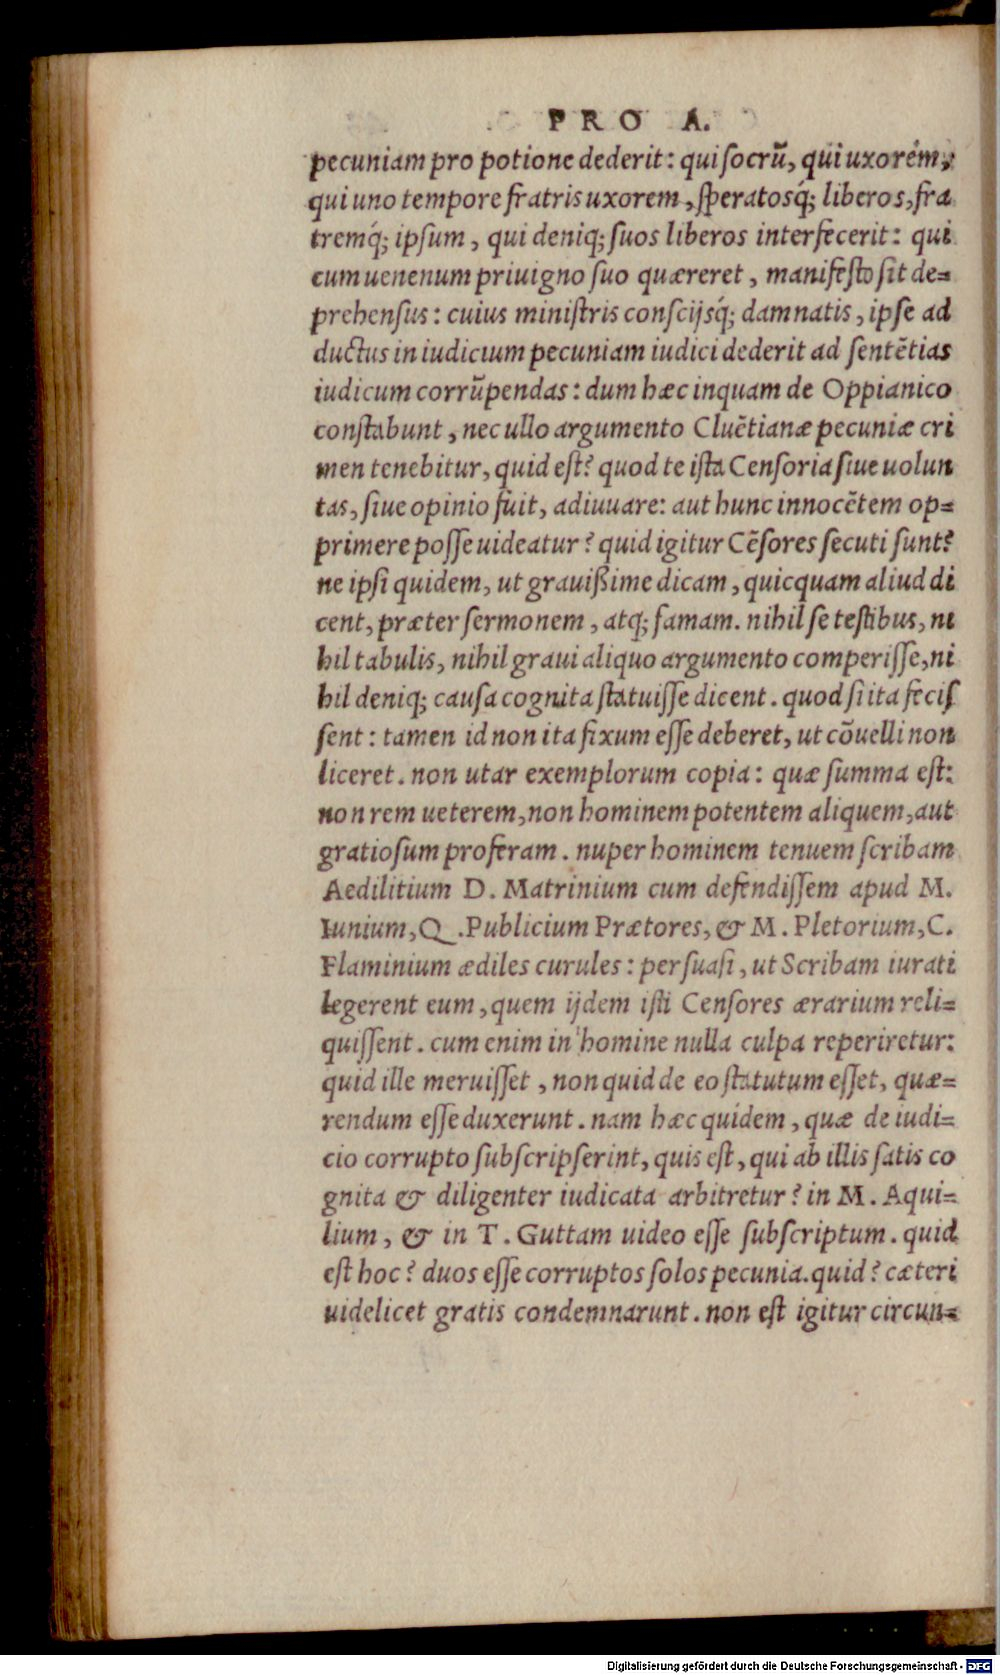 PRO A.
pecuniam pro potione dederit: qui ſocrũ, qui uxorem,
qui uno tempore fratris uxorem, ſperatosq́; liberos, fra
tremq́; ipſum, qui deniq; ſuos liberos interfecerit: qui
cum uenenum priuigno ſuo quæreret, manifeſto ſit de=
prehenſus: cuius miniſtris conſcijsq́; damnatis, ipſe ad
ductus in iudicium pecuniam iudici dederit ad ſentẽtias
iudicum corrũpendas: dum hæc inquam de Oppianico
conſtabunt, nec ullo argumento Cluẽtianæ pecuniæ cri
men tenebitur, quid eſt? quod te iſta Cenſoria ſiue uolun
tas, ſiue opinio fuit, adiuuare: aut hunc innocẽtem op=
primere poſſe uideatur? quid igitur Cẽſores ſecuti ſunt?
ne ipſi quidem, ut grauißime dicam, quicquam aliud di
cent, præter ſermonem, atq; famam. nihil ſe teſtibus, ni
hil tabulis, nihil graui aliquo argumento comperiſſe, ni
hil deniq; cauſa cognita ſtatuiſſe dicent. quod ſi ita feciſ
ſent: tamen id non ita fixum eſſe deberet, ut cõuelli non
liceret. non utar exemplorum copia: quæ ſumma eſt:
non rem ueterem, non hominem potentem aliquem, aut
gratioſum proferam. nuper hominem tenuem ſcribam
Aedilitium D. Matrinium cum defendiſſem apud M.
Iunium, Q. Publicium Prætores, & M. Pletorium, C.
Flaminium ædiles curules: perſuaſi, ut Scribam iurati
legerent eum, quem ijdem iſti Cenſores ærarium reli=
quiſſent. cum enim in homine nulla culpa reperiretur:
quid ille meruiſſet, non quid de eo ſtatutum eſſet, quæ=
rendum eſſe duxerunt. nam hæc quidem, quæ de iudi=
cio corrupto ſubſcripſerint, quis eſt, qui ab illis ſatis co
gnita & diligenter iudicata arbitretur? in M. Aqui=
lium, & in T. Guttam uideo eſſe ſubſcriptum. quid
eſt hoc? duos eſſe corruptos ſolos pecunia. quid? cæteri
uidelicet gratis condemnarunt. non eſt igitur circun=
Digitalisierung gefördert durch die Deutsche Forschungsgemeinschaft - DFG